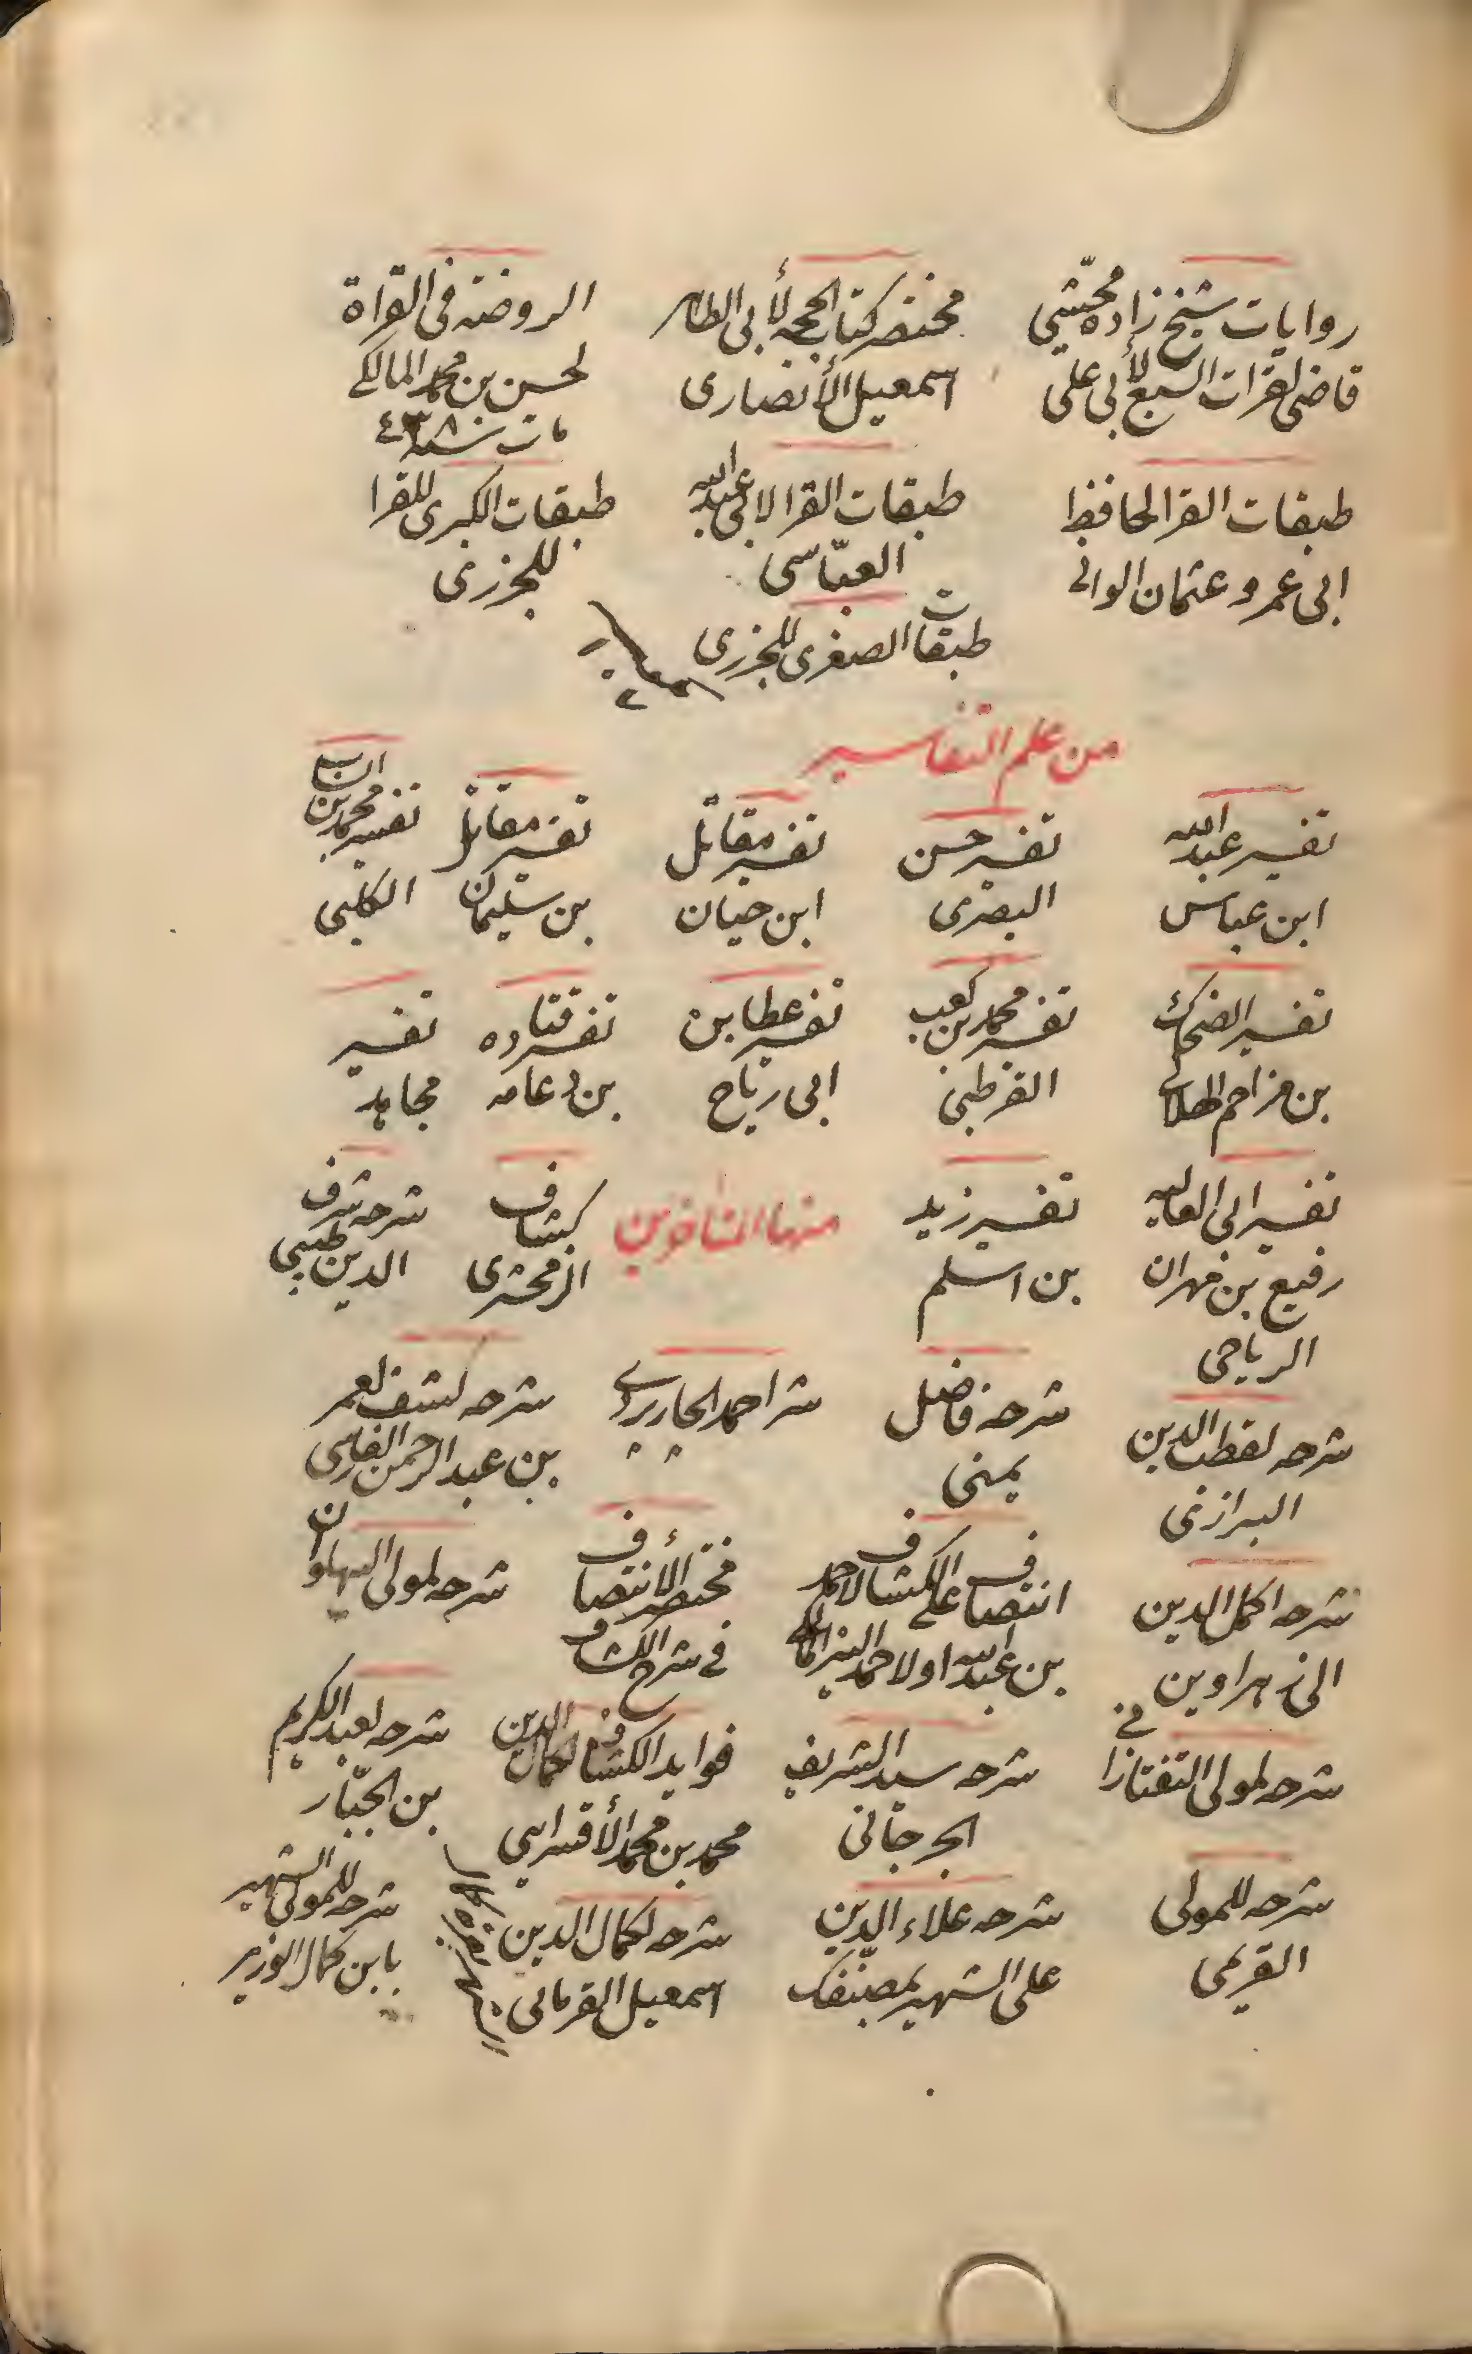 روايات شيخ زاده محشّي
قاضى لقرات السبع لأبى على
مختصر كتاب الحجه لأبى الطاهر
اسمعيل الأنصارى
الروضه فى القراة
لحسن بن محمد المالكى
مات سنه ٤٣٨
طبقات القرا لحافظ
ابى عمرو عثمان الدانى
طبقات القرا لابى عبد الله
العبّاسى
طبقات الكبرى للقرا
للجزرى
طبقات الصغرى للجزرى
من علم التفاسير
تفسير عبد الله
ابن عباس
تفسير حسن
البصرى
تفسير مقاتل
ابن حيان
تفسير مقاتل
بن سليمان
تفسير محمد بن السايب
الكلبى
تفسير الضحاك
بن مزاحم الهلالى
تفسير محمد بن كعب
القرظى
تفسير عطا بن
ابى رباح
تفسير قتاده
بن دعامه
تفسير
مجاهد
تفسير ابى العاليه
رفيع بن مهران
الرياحى
تفسير زيد
بن اسلم
منها المتاخرين
كشاف
الزمخشرى
شرحه شرف
الدين طيبى
شرحه لقطب الدين
البرازى
شرحه فاضل
يمنى
شر احمد الجاربردى
شرحه كشف لعمر
بن عبد الرحمن الفارسى
شرحه اكمل الدين
الى زهراوين
انتصاف على الكشاف لاحمد
بن عبد الله اولاحمد المالكى
مختصر الأنتصاف
فى شرح الكشاف
شرحه لمولى البهلوان
شرحه لمولى التفتازانى
شرحه سيد الشريف
الجرجانى
فوايد الكشاف لجمال الدين
محمد بن محمد الأقسرايى
شرحه لعبد الكريم
بن الجبّار
شرحه للمولى
القريمى
شرحه علاء الدين
على الشهير بمصنّفك
شرحه لكمال الدين
اسمعيل القرمانى
شرحه للمولى الشهير
بابن كمال الوزير